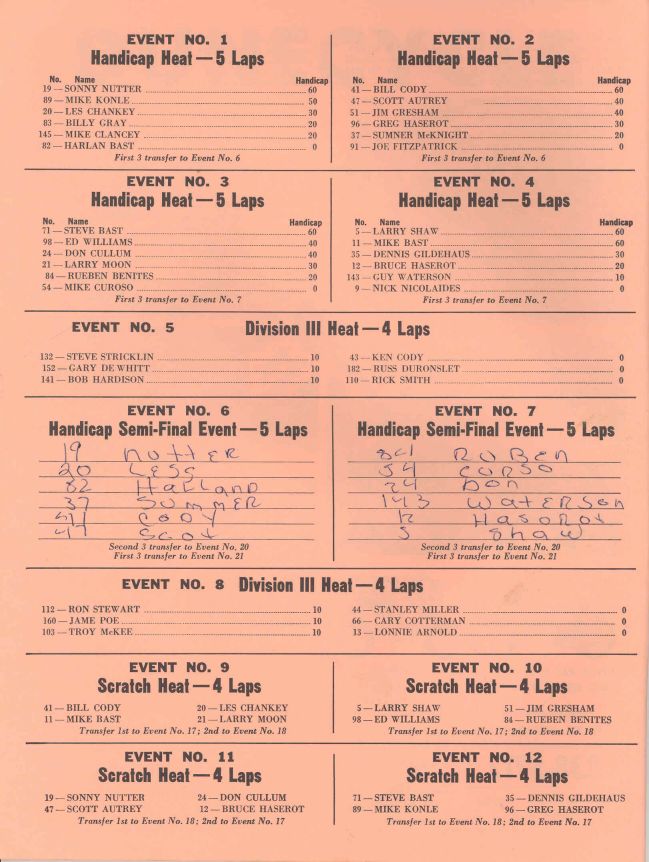 EVENT NO. 1
Handicap Heat — 5 Laps
No. Name Handicap
19 — SONNY NUTTER 60
89 — MIKE KONLE 50
20 — LES CHANKEY 30
83 — BILLY GRAY 20
145 — MIKE CLANCEY 20
82 — HARLAN BAST 0
First 3 transfer to Event No. 6
EVENT NO. 2
Handicap Heat — 5 Laps
No. Name Handicap
41 — BILL CODY 60
47 — SCOTT AUTREY 40
51 — JIM GRESHAM 40
96 — GREG HASEROT 30
37 — SUMNER McKNIGHT 20
91 — JOE FITZPATRICK 0
First 3 transfer to Event No. 6
EVENT NO. 3
Handicap Heat — 5 Laps
No. Name Handicap
71 — STEVE BAST 60
98 — ED WILLIAMS 40
24 — DON CULLUM 40
21 — LARRY MOON 30
84 — RUEBEN BENITES 20
54 — MIKE CUROSO 0
First 3 transfer to Event No. 7
EVENT NO. 4
Handicap Heat — 5 Laps
No. Name Handicap
5 — LARRY SHAW 60
11 — MIKE BAST 60
35 — DENNIS GILDEHAUS 30
12 — BRUCE HASEROT 20
143 — GUY WATERSON 10
9 — NICK NICOLAIDES 0
First 3 transfer to Event No. 7
EVENT NO. 5 Division III Heat — 4 Laps
132 — STEVE STRICKLIN 10
152 — GARY DE WHITT 10
141 — BOB HARDISON 10
43 — KEN CODY 0
182 — RUSS DURONSLET 0
110 — RICK SMITH 0
EVENT NO. 6
Handicap Semi-Final Event — 5 Laps
19 NUTTER
20 LESS
82 HALLAND
37 SUMMER
41 CODY
47 SCOT
Second 3 transfer to Event No. 20
First 3 transfer to Event No. 21
EVENT NO. 7
Handicap Semi-Final Event — 5 Laps
84 RUBEN
54 CURSO
24 DON
143 WATERSON
12 HASOROT
5 SHAW
Second 3 transfer to Event No. 20
First 3 transfer to Event No. 21
EVENT NO. 8 Division III Heat — 4 Laps
112 — RON STEWART 10
160 — JAME POE 10
103 — TROY McKEE 10
44 — STANLEY MILLER 0
66 — CARY COTTERMAN 0
13 — LONNIE ARNOLD 0
EVENT NO. 9
Scratch Heat — 4 Laps
41 — BILL CODY 20 — LES CHANKEY
11 — MIKE BAST 21 — LARRY MOON
Transfer 1st to Event No. 17; 2nd to Event No. 18
EVENT NO. 10
Scratch Heat — 4 Laps
5 — LARRY SHAW 51 — JIM GRESHAM
98 — ED WILLIAMS 84 — RUEBEN BENITES
Transfer 1st to Event No. 17; 2nd to Event No. 18
EVENT NO. 11
Scratch Heat — 4 Laps
19 — SONNY NUTTER 24 — DON CULLUM
47 — SCOTT AUTREY 12 — BRUCE HASEROT
Transfer 1st to Event No. 18; 2nd to Event No. 17
EVENT NO. 12
Scratch Heat — 4 Laps
71 — STEVE BAST 35 — DENNIS GILDEHAUS
89 — MIKE KONLE 96 — GREG HASEROT
Transfer 1st to Event No. 18; 2nd to Event No. 17